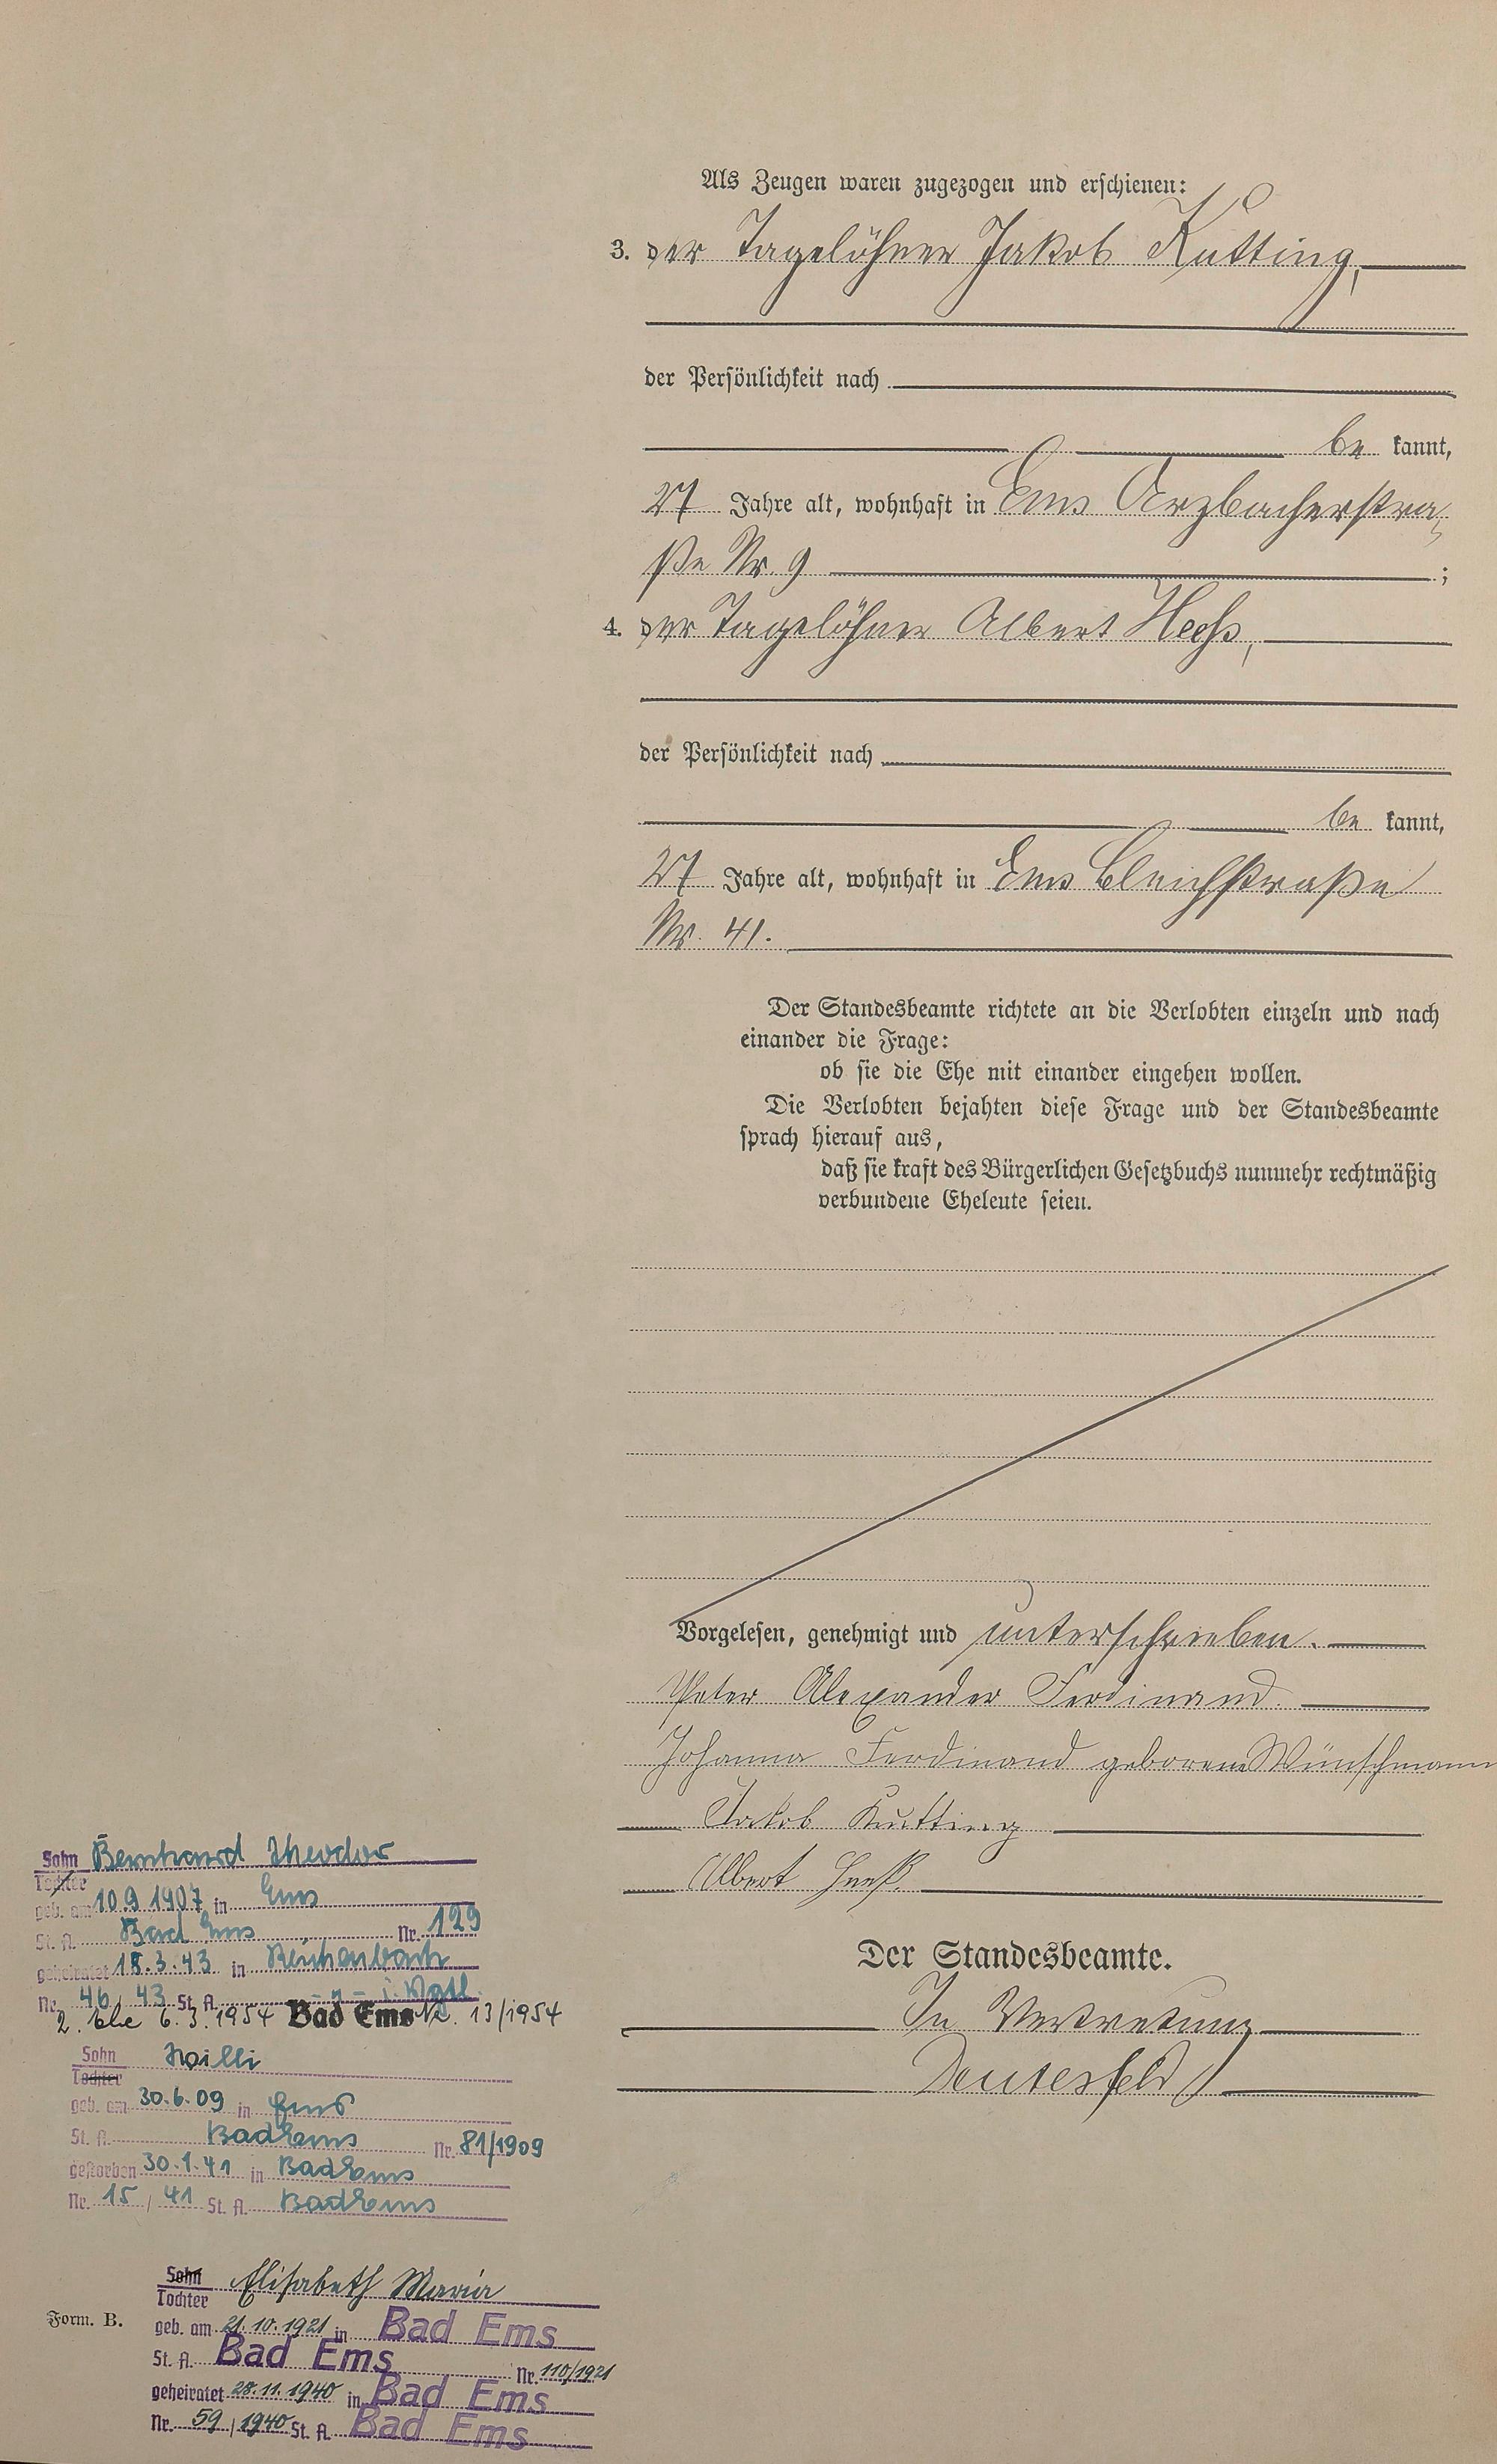 Als Zeugen waren zugezogen und erschienen:
3. der Tagelöhner Jakob Kutting,
der Persönlichkeit nach
be kannt,
27 Jahre alt, wohnhaft in Ems Arzbacherstra-
ße Nr. 9 ;
4. der Tagelöhner Albert Heeß,
der Persönlichkeit nach
be kannt,
27 Jahre alt, wohnhaft in Ems Bleichstraße
Nr. 41.
Der Standesbeamte richtete an die Verlobten einzeln und nach
einander die Frage:
ob sie die Ehe mit einander eingehen wollen.
Die Verlobten bejahten diese Frage und der Standesbeamte
sprach hierauf aus,
daß sie kraft des Bürgerlichen Gesetzbuchs nunmehr rechtmäßig
verbundene Eheleute seien.
Vorgelesen, genehmigt und unterschrieben.
Peter Alexander Ferdinand.
Johanna Ferdinand geborene Wünschmann
Jakob Kutting
Albert Heeß.
Der Standesbeamte.
In Vertretung
Sohn Bernhard Theodor
Tochter
geb. am 10.9.1907 in Ems
St. A. Bad Ems Nr. 129
geheiratet 18.3.43 in Reichenbach
Nr. 46 / 43 St. A. - " - i. Vogtl.
2. Ehe 6.3.1954 Bad Ems Nr. 13/1954
Sohn Willi
Tochter
geb. am 30.6.09 in Ems
St. A. Bad Ems Nr. 81/1909
gestorben 30.1.41 in Bad Ems
Nr. 15 / 41 St. A. Bad Ems
Sohn Elisabeth Maria
Tochter
Form. B. geb. am 21.10.1921 in Bad Ems
St. A. Bad Ems Nr. 110/1921
geheiratet 28.11.1940 in Bad Ems
Nr. 59 / 1940 St. A. Bad Ems